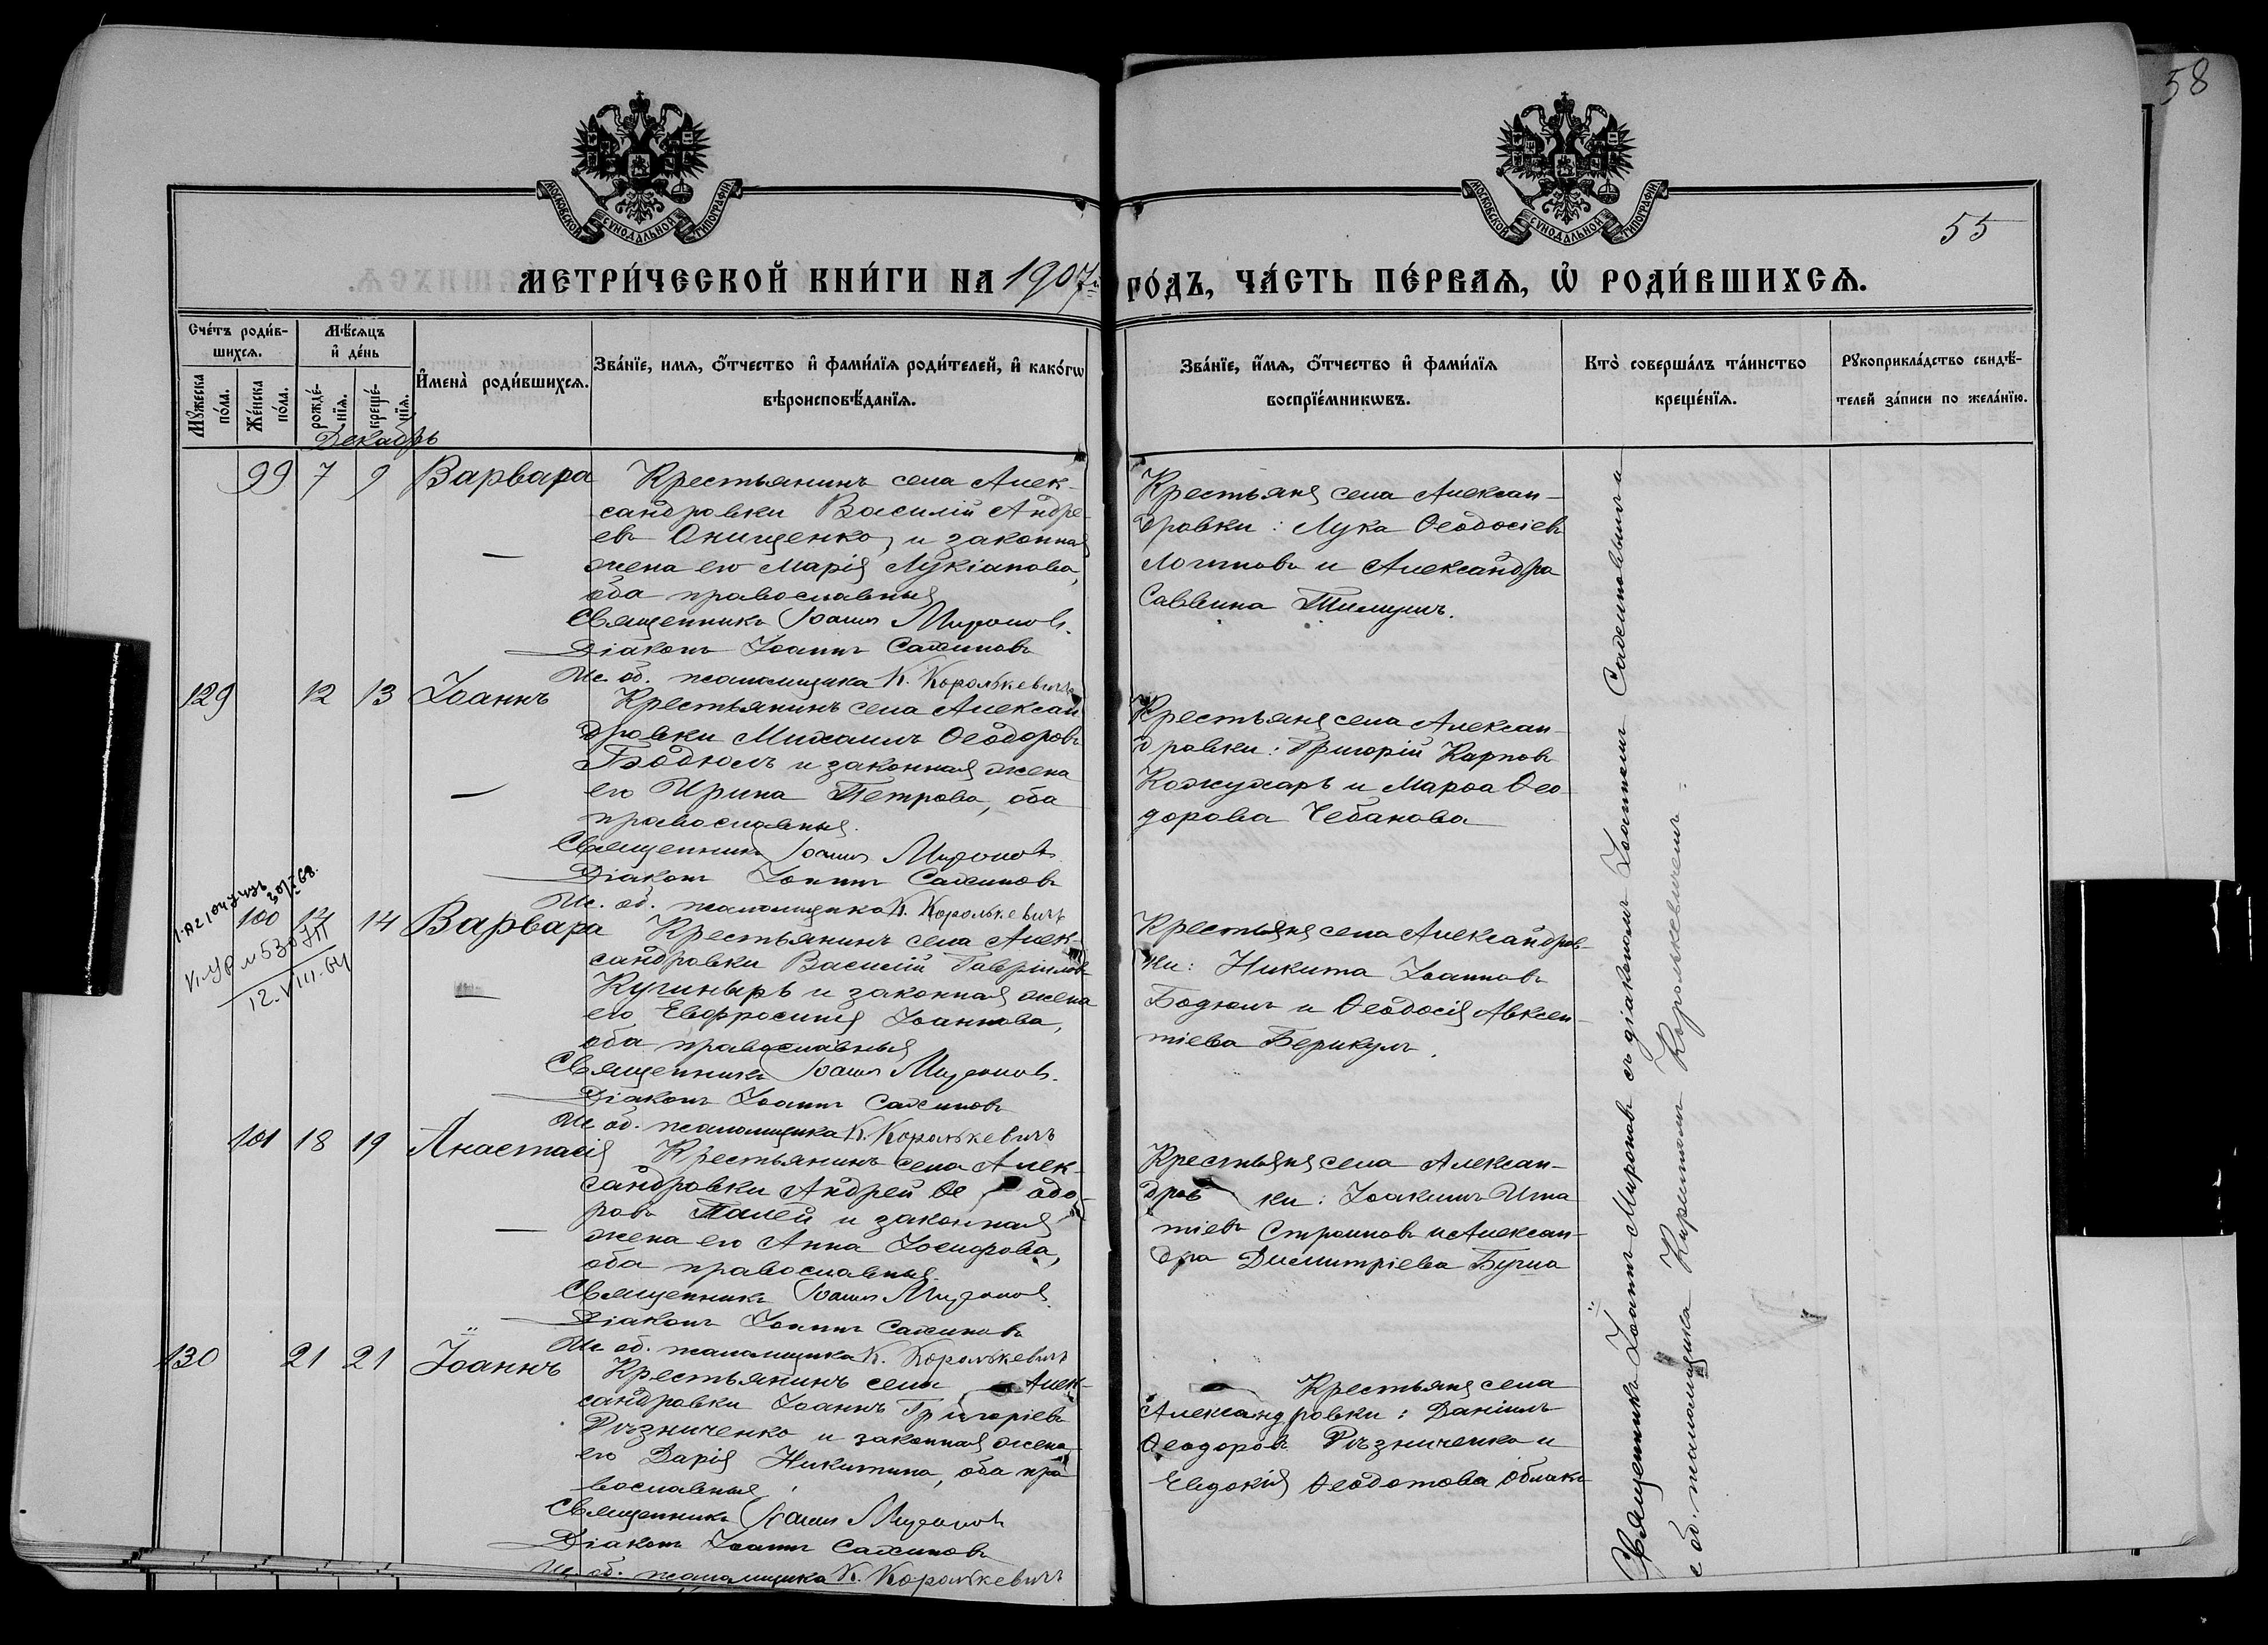 58
МОСКОВСКОЙ СѴНОДАЛЬНОЙ ТИПОГРАФІИ
МОСКОВСКОЙ СѴНОДАЛЬНОЙ ТИПОГРАФІИ
55
МЕТРИ́ЧЕСКОЙ КНИ́ГИ НА 1907 й
РО́ДЪ, ЧА́СТЬ ПЕ́РВАѦ, Ѡ҆ РОДИ́ВШИХСѦ.
Сче́тъ роди́в-
шихсѧ.
Мѣ́сѧцъ
и҆ де́нь
Мꙋ́жеска
по́ла.
Же́нска
по́ла.
рожде́-
нїѧ.
креще́-
нїѧ.
И҆мена̀ роди́вшихсѧ.
Зва́нїе, имѧ, ѻ҆́тчество и҆ фами́лїѧ роди́телей, и҆ како́гѡ
вѣроисповѣ́данїѧ.
Зва́нїе, и҆́мѧ, ѻ҆́тчество и҆ фами́лїѧ
воспрїе́мникѡвъ.
Кто̀ соверша́лъ та́инство
креще́нїѧ.
Рꙋкоприкла́дство свидѣ́-
телей за́писи по жела́нїю.
Декабрь
99 7 9 Варвара
Крестьянинъ села Алек-
сандровки Василій Андре-
евъ Онищенко, и законная
жена его Марія Лукіанова,
оба православныя
Священникъ Іоаннъ Мироновъ.
Діаконъ Іоаннъ Сахиновъ
Ис. об. псаломщика К. Королькевичъ
Крестьяня села Алексан-
дровки: Лука Ѳеодосіевъ
Логиновъ и Александра
Саввина
129 12 13 Іоаннъ
Крестьянинъ села Алексан
дровки Михаилъ Ѳеодоровъ
Бодюлъ и законная жена
его Ирина Петрова, оба
православныя.
Священникъ Іоаннъ Мироновъ
Діаконъ Іоаннъ Сахиновъ
Ис. об. псаломщика К. Королькевичъ
Крестьяня села Алексан-
дровки: Григорій Карповъ
Кожухарь и Марѳа Ѳео
дорова Чебанова
VI-УР № 530711
12.VIII.64
100 14 14 Варвара
Крестьянинъ села Алек-
сандровки Василій Гавріиловъ
Кучинырь и законная жена
его Евфросинія Іоаннова,
оба православныя
Священникъ Іоаннъ Мироновъ.
Діаконъ Іоаннъ Сахиновъ
Ис. об. псаломщика К. Королькевичъ
Крестьяня села Александров-
ки: Никита Іоанновъ
Бодюлъ и Ѳеодосія Авксен-
тіева Берикулъ.
101 18 19 Анастасія
Крестьянинъ села Алек-
сандровки Андрей Ѳе одо-
ровъ Палей и законная
жена его Анна Іосифова,
оба православныя.
Священникъ Іоаннъ Мироновъ.
Діаконъ Іоаннъ Сахиновъ
Ис. об. псаломщика К. Королькевичъ
Крестьяня села Алексан-
дров ки: Іоакимъ Игна
тіевъ Строиновъ и Алексан-
дра Димитріева
130 21 21 Іоаннъ
Крестьянинъ села Алек-
сандровки Іоаннъ Григоріевъ
Рѣзниченко и законная жена
его Дарія Никитина, оба пра
вославныя
Священникъ Іоаннъ Мироновъ
Діаконъ Іоаннъ Сахиновъ
Ис. об. псаломщика К. Королькевичъ
Крестьяня села
Александровки: Даніилъ
Ѳеодоровъ Рѣзниченко и
Евдокія Ѳеодотова
Священникъ Іоаннъ Мироновъ съ діакономъ Іоанномъ Сахиновымъ и
и. об. псаломщика Королькевичемъ.